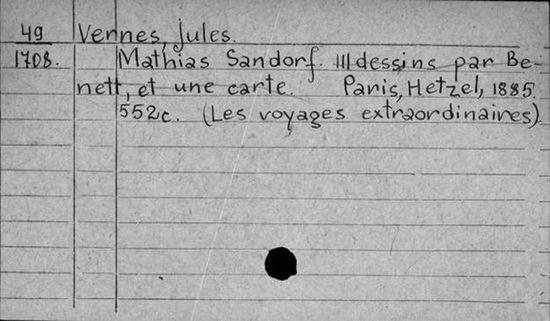 49 Vernes, Jules.
1708. Mathias Sandorf. 111 dessins par Be-
nett, et une carte. Paris, Hetzel, 1885.
552c. (Les voyages extraordinaires)